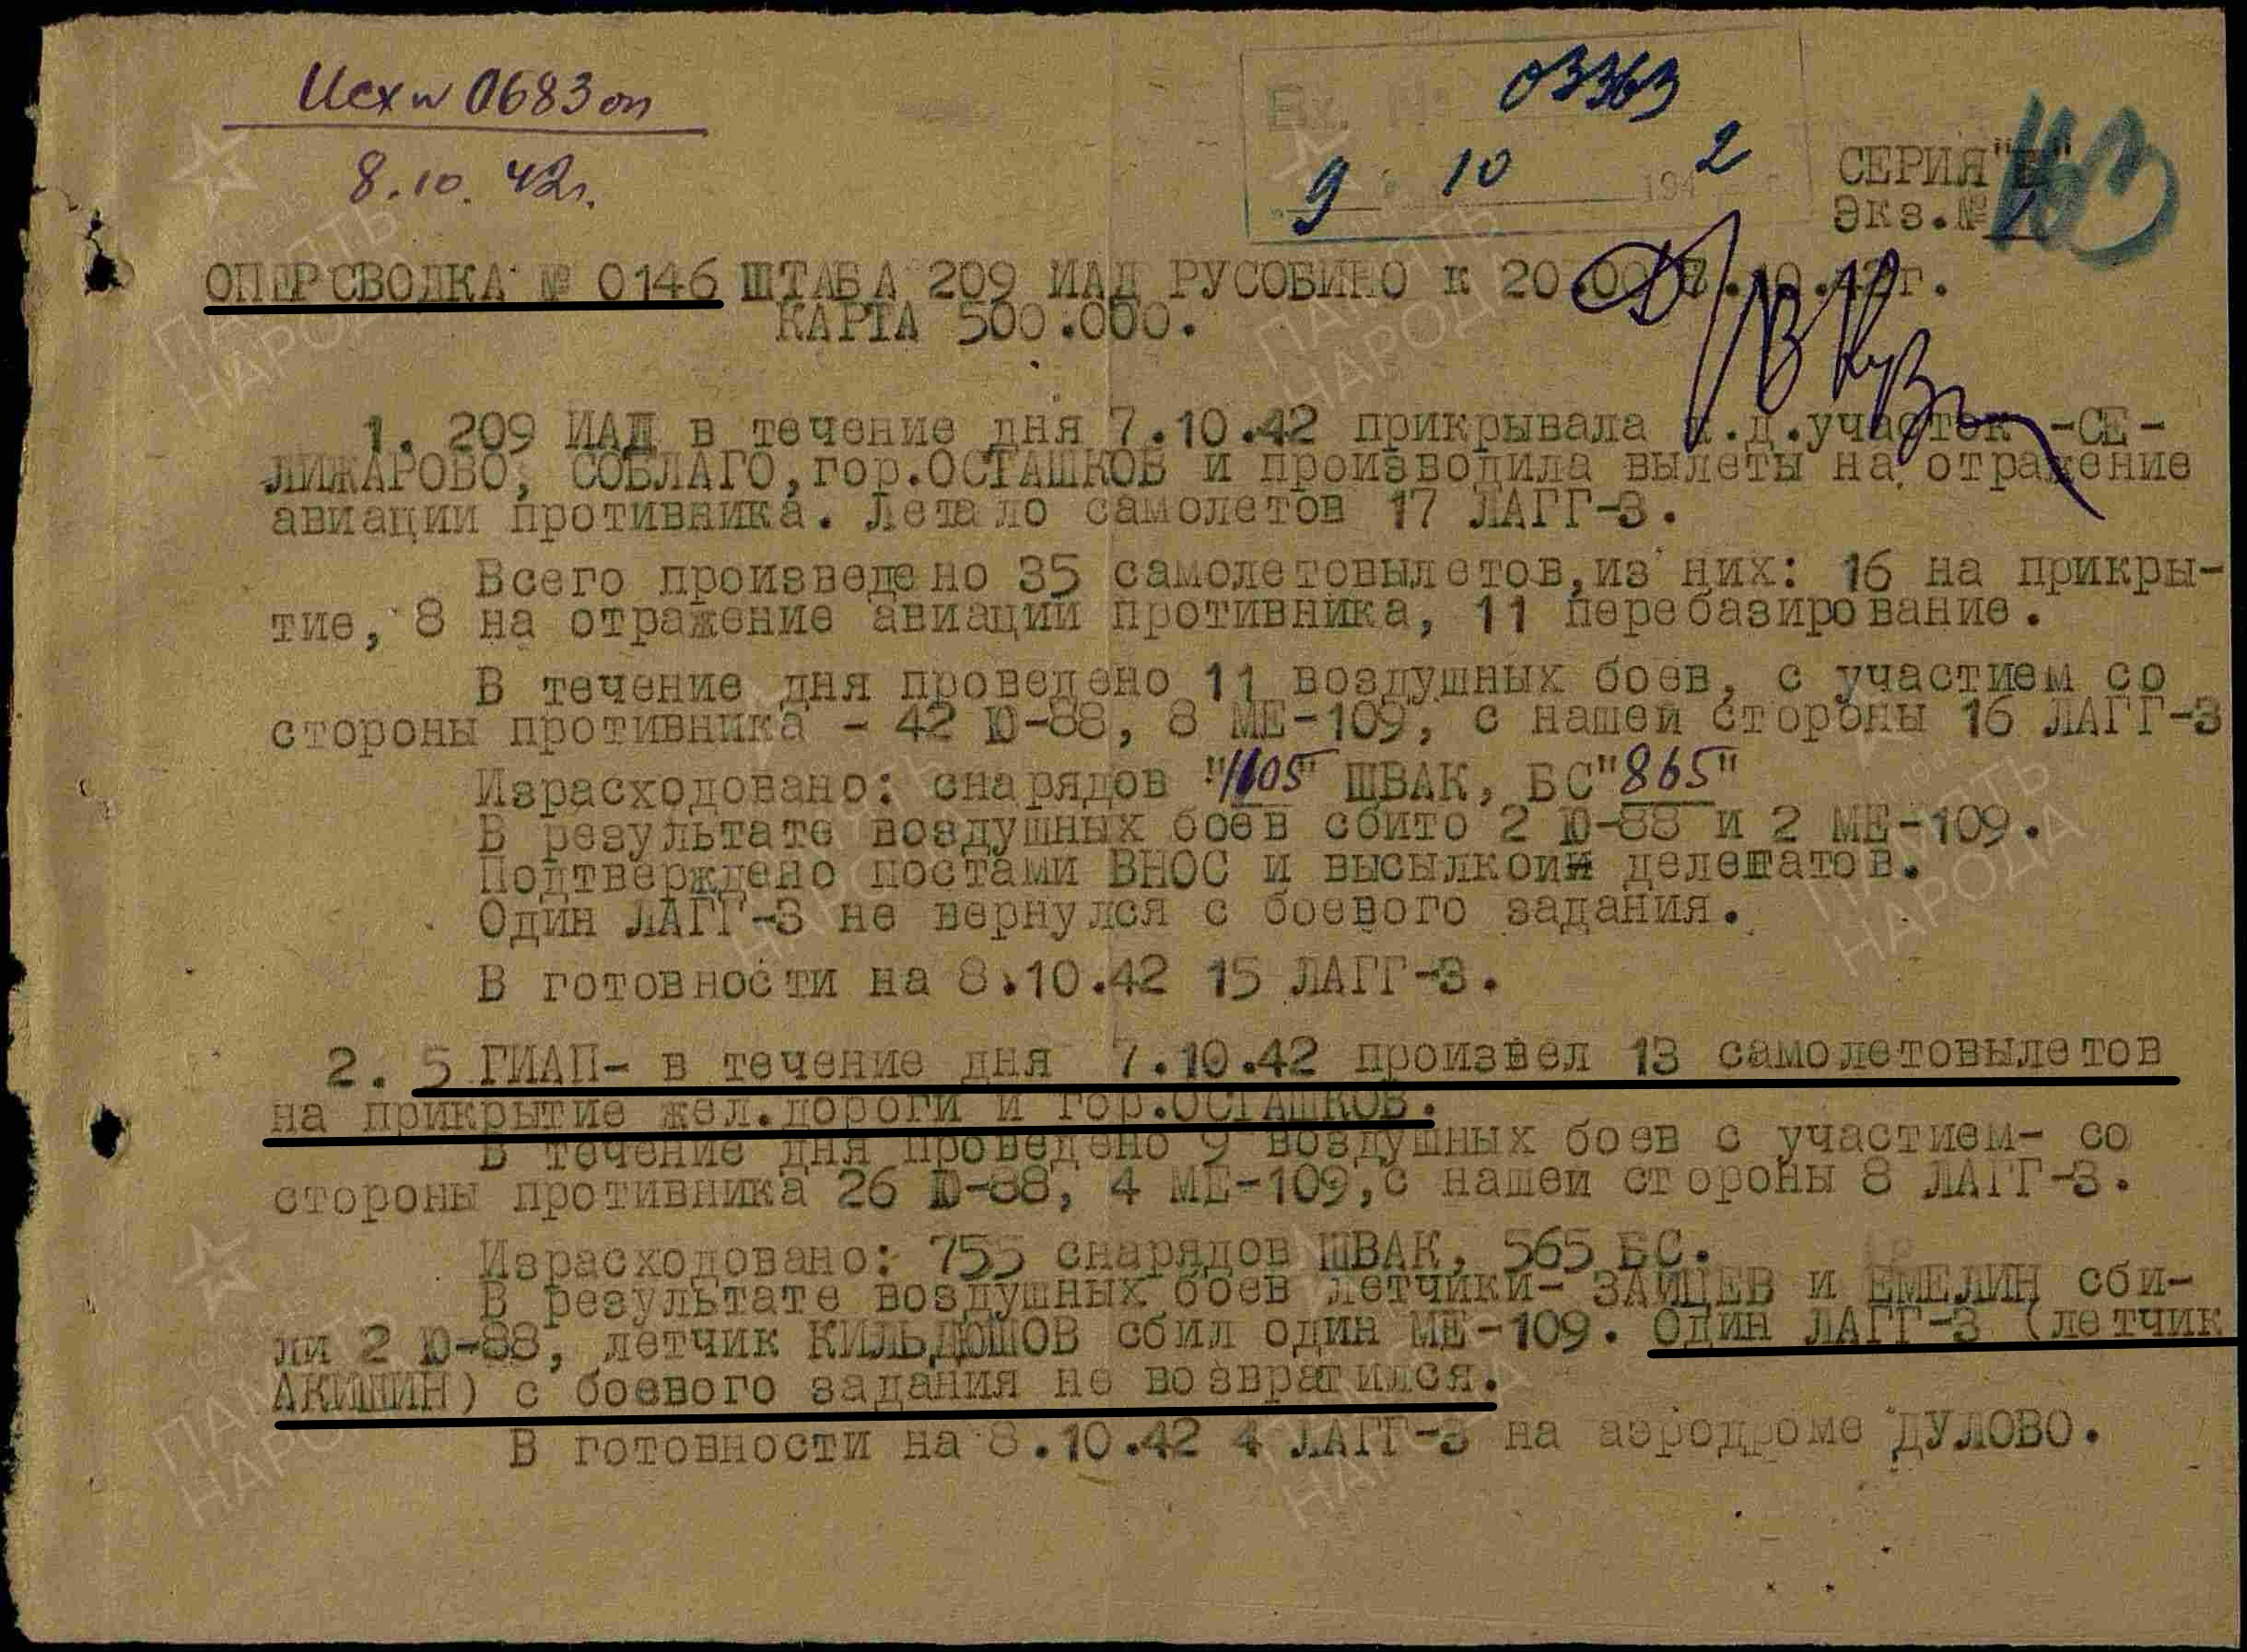 Исх № 0683 оп
8.10.42г.
Вх. №
03363
9 10 1942
СЕРИЯ "Б"
Экз.№
163
ОПЕРСВОДКА № 0146 ШТАБА 209 ИАД РУСОБИНО к 20.00 7.10.42г.
КАРТА 500.000.
1. 209 ИАД в течение дня 7.10.42 прикрывала ж.д.участок -СЕ-
ЛИЖАРОВО, СОБЛАГО,гор.ОСТАШКОВ и производила вылеты на отражение
авиации противника. Летало самолетов 17 ЛАГГ-3.
Всего произведено 35 самолетовылетов,из них: 16 на прикры-
тие, 8 на отражение авиации противника, 11 перебазирование.
В течение дня проведено 11 воздушных боев, с участием со
стороны противника - 42 Ю-88, 8 МЕ-109, с нашей стороны 16 ЛАГГ-3
Израсходовано: снарядов "1105" ШВАК, БС"865"
В результате воздушных боев сбито 2 Ю-88 и 2 МЕ-109.
Подтверждено постами ВНОС и высылкой делегатов.
Один ЛАГГ-3 не вернулся с боевого задания.
В готовности на 8.10.42 15 ЛАГГ-3.
2. 5 ГИАП- в течение дня 7.10.42 произвел 13 самолетовылетов
на прикрытие жел.дороги и гор.ОСТАШКОВ.
В течение дня проведено 9 воздушных боев с участием- со
стороны противника 26 Ю-88, 4 МЕ-109,с нашей стороны 8 ЛАГГ-3.
Израсходовано: 755 снарядов ШВАК, 565 БС.
В результате воздушных боев летчики- ЗАЙЦЕВ и ЕМЕЛИН сби-
ли 2 Ю-88, летчик КИЛЬДЮШОВ сбил один МЕ-109. Один ЛАГГ-3 (летчик
АКИШИН) с боевого задания не возвратился.
В готовности на 8.10.42 4 ЛАГГ-3 на аэродроме ДУЛОВО.
ПАМЯТЬ
НАРОДА